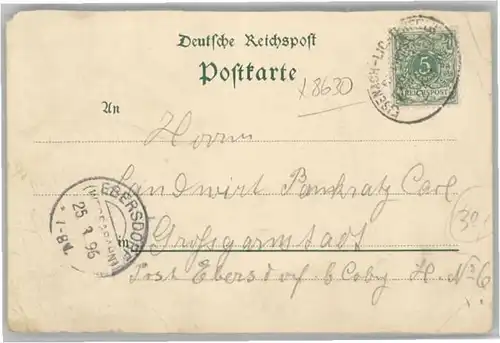 Deutsche Reichspost
Postkarte
8630
An
Herrn
Landwirt Pankratz Carl
in Großgarnstadt
Post Ebersdorf b Cobg H. No 6
30
5
REICHSPOST
EISENACH-LICHTENFELS
EBERSDORF
25 96
7-8 V